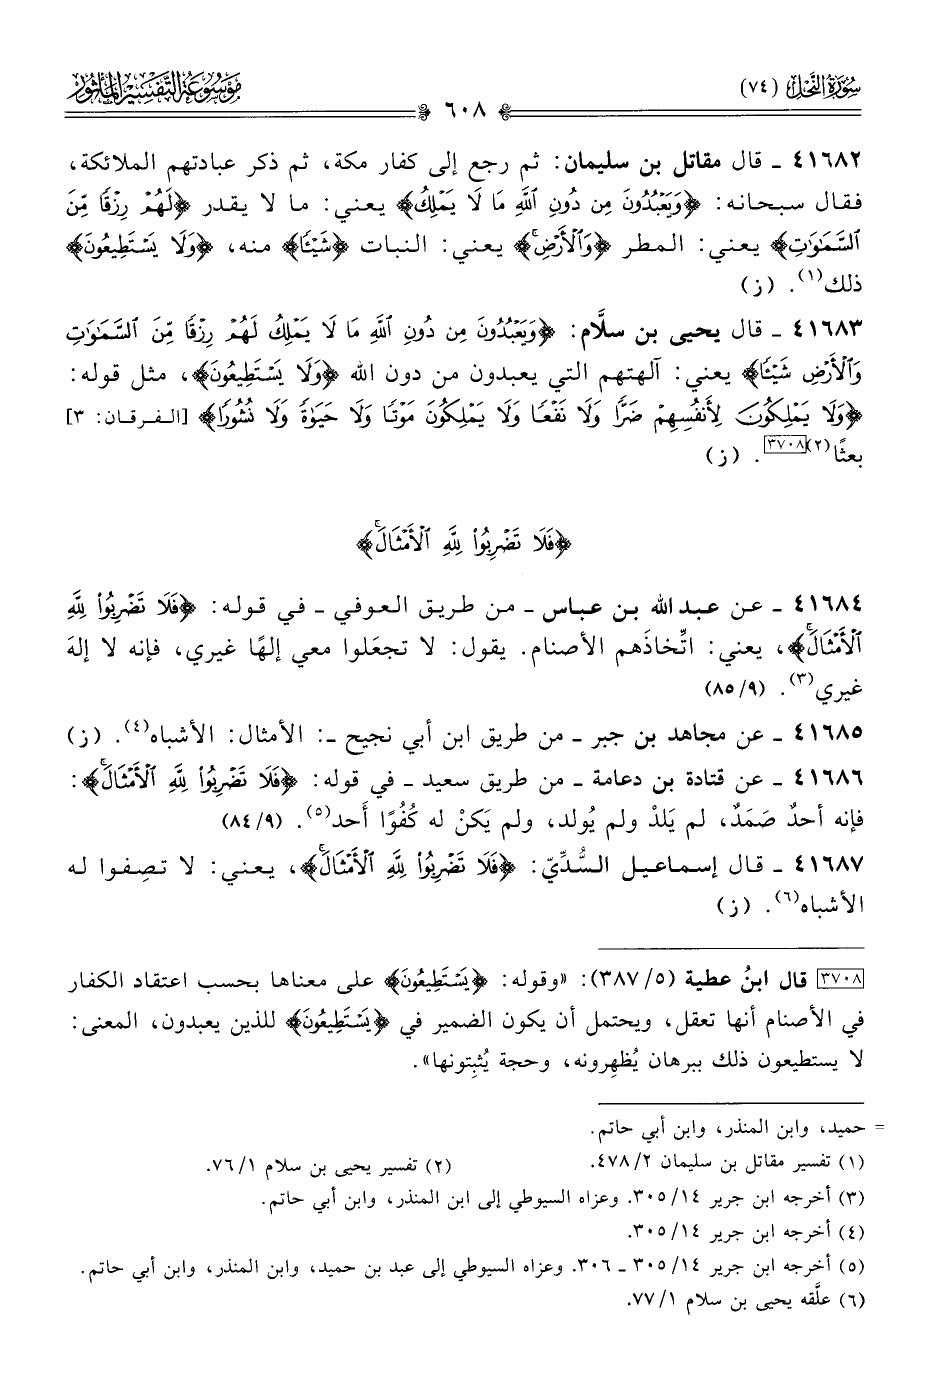 سُورَةُ النَّحْلِ (٧٤)
٦٠٨
مَوْسُوعَةُ التَّفْسِيرِ المَأْثُورِ
٤١٦٨٢ - قال مقاتل بن سليمان: ثم رجع إلى كفار مكة، ثم ذكر عبادتهم الملائكة،
فقال سبحانه: ﴿وَيَعْبُدُونَ مِن دُونِ ٱللَّهِ مَا لَا يَمْلِكُ﴾ يعني: ما لا يقدر ﴿لَهُمْ رِزْقًا مِّنَ
ٱلسَّمَٰوَٰتِ﴾ يعني: المطر ﴿وَٱلْأَرْضِ﴾ يعني: النبات ﴿شَيْـًٔا﴾ منه، ﴿وَلَا يَسْتَطِيعُونَ﴾
ذلك(١). (ز)
٤١٦٨٣ - قال يحيى بن سلَّام: ﴿وَيَعْبُدُونَ مِن دُونِ ٱللَّهِ مَا لَا يَمْلِكُ لَهُمْ رِزْقًا مِّنَ ٱلسَّمَٰوَٰتِ
وَٱلْأَرْضِ شَيْـًٔا﴾ يعني: آلهتهم التي يعبدون من دون الله ﴿وَلَا يَسْتَطِيعُونَ﴾، مثل قوله:
﴿وَلَا يَمْلِكُونَ لِأَنفُسِهِمْ ضَرًّا وَلَا نَفْعًا وَلَا يَمْلِكُونَ مَوْتًا وَلَا حَيَوٰةً وَلَا نُشُورًا﴾ [الفرقان: ٣]
بعثًا(٢)[٣٧٠٨]. (ز)
﴿فَلَا تَضْرِبُوا۟ لِلَّهِ ٱلْأَمْثَالَۚ﴾
٤١٦٨٤ - عن عبد الله بن عباس - من طريق العوفي - في قوله: ﴿فَلَا تَضْرِبُوا۟ لِلَّهِ
ٱلْأَمْثَالَۚ﴾، يعني: اتِّخاذَهم الأصنام. يقول: لا تجعَلوا معي إلهًا غيري، فإنه لا إلهَ
غيري(٣). (٨٥/٩)
٤١٦٨٥ - عن مجاهد بن جبر - من طريق ابن أبي نجيح -: الأمثال: الأشباه(٤). (ز)
٤١٦٨٦ - عن قتادة بن دعامة - من طريق سعيد - في قوله: ﴿فَلَا تَضْرِبُوا۟ لِلَّهِ ٱلْأَمْثَالَۚ﴾:
فإنه أحدٌ صَمَدٌ، لم يَلدْ ولم يُولد، ولم يَكنْ له كُفُوًا أَحد(٥). (٨٤/٩)
٤١٦٨٧ - قال إسماعيل السُّدِّيّ: ﴿فَلَا تَضْرِبُوا۟ لِلَّهِ ٱلْأَمْثَالَۚ﴾، يعني: لا تصِفوا له
الأشباه(٦). (ز)
[٣٧٠٨] قال ابنُ عطية (٣٨٧/٥): «وقوله: ﴿يَسْتَطِيعُونَ﴾ على معناها بحسب اعتقاد الكفار
في الأصنام أنها تعقل، ويحتمل أن يكون الضمير في ﴿يَسْتَطِيعُونَ﴾ للذين يعبدون، المعنى:
لا يستطيعون ذلك ببرهان يُظهِرونه، وحجة يُثبِتونها».
= حميد، وابن المنذر، وابن أبي حاتم.
(١) تفسير مقاتل بن سليمان ٤٧٨/٢. (٢) تفسير يحيى بن سلام ٧٦/١.
(٣) أخرجه ابن جرير ٣٠٥/١٤. وعزاه السيوطي إلى ابن المنذر، وابن أبي حاتم.
(٤) أخرجه ابن جرير ٣٠٥/١٤.
(٥) أخرجه ابن جرير ٣٠٥/١٤ - ٣٠٦. وعزاه السيوطي إلى عبد بن حميد، وابن المنذر، وابن أبي حاتم.
(٦) علَّقه يحيى بن سلام ٧٧/١.